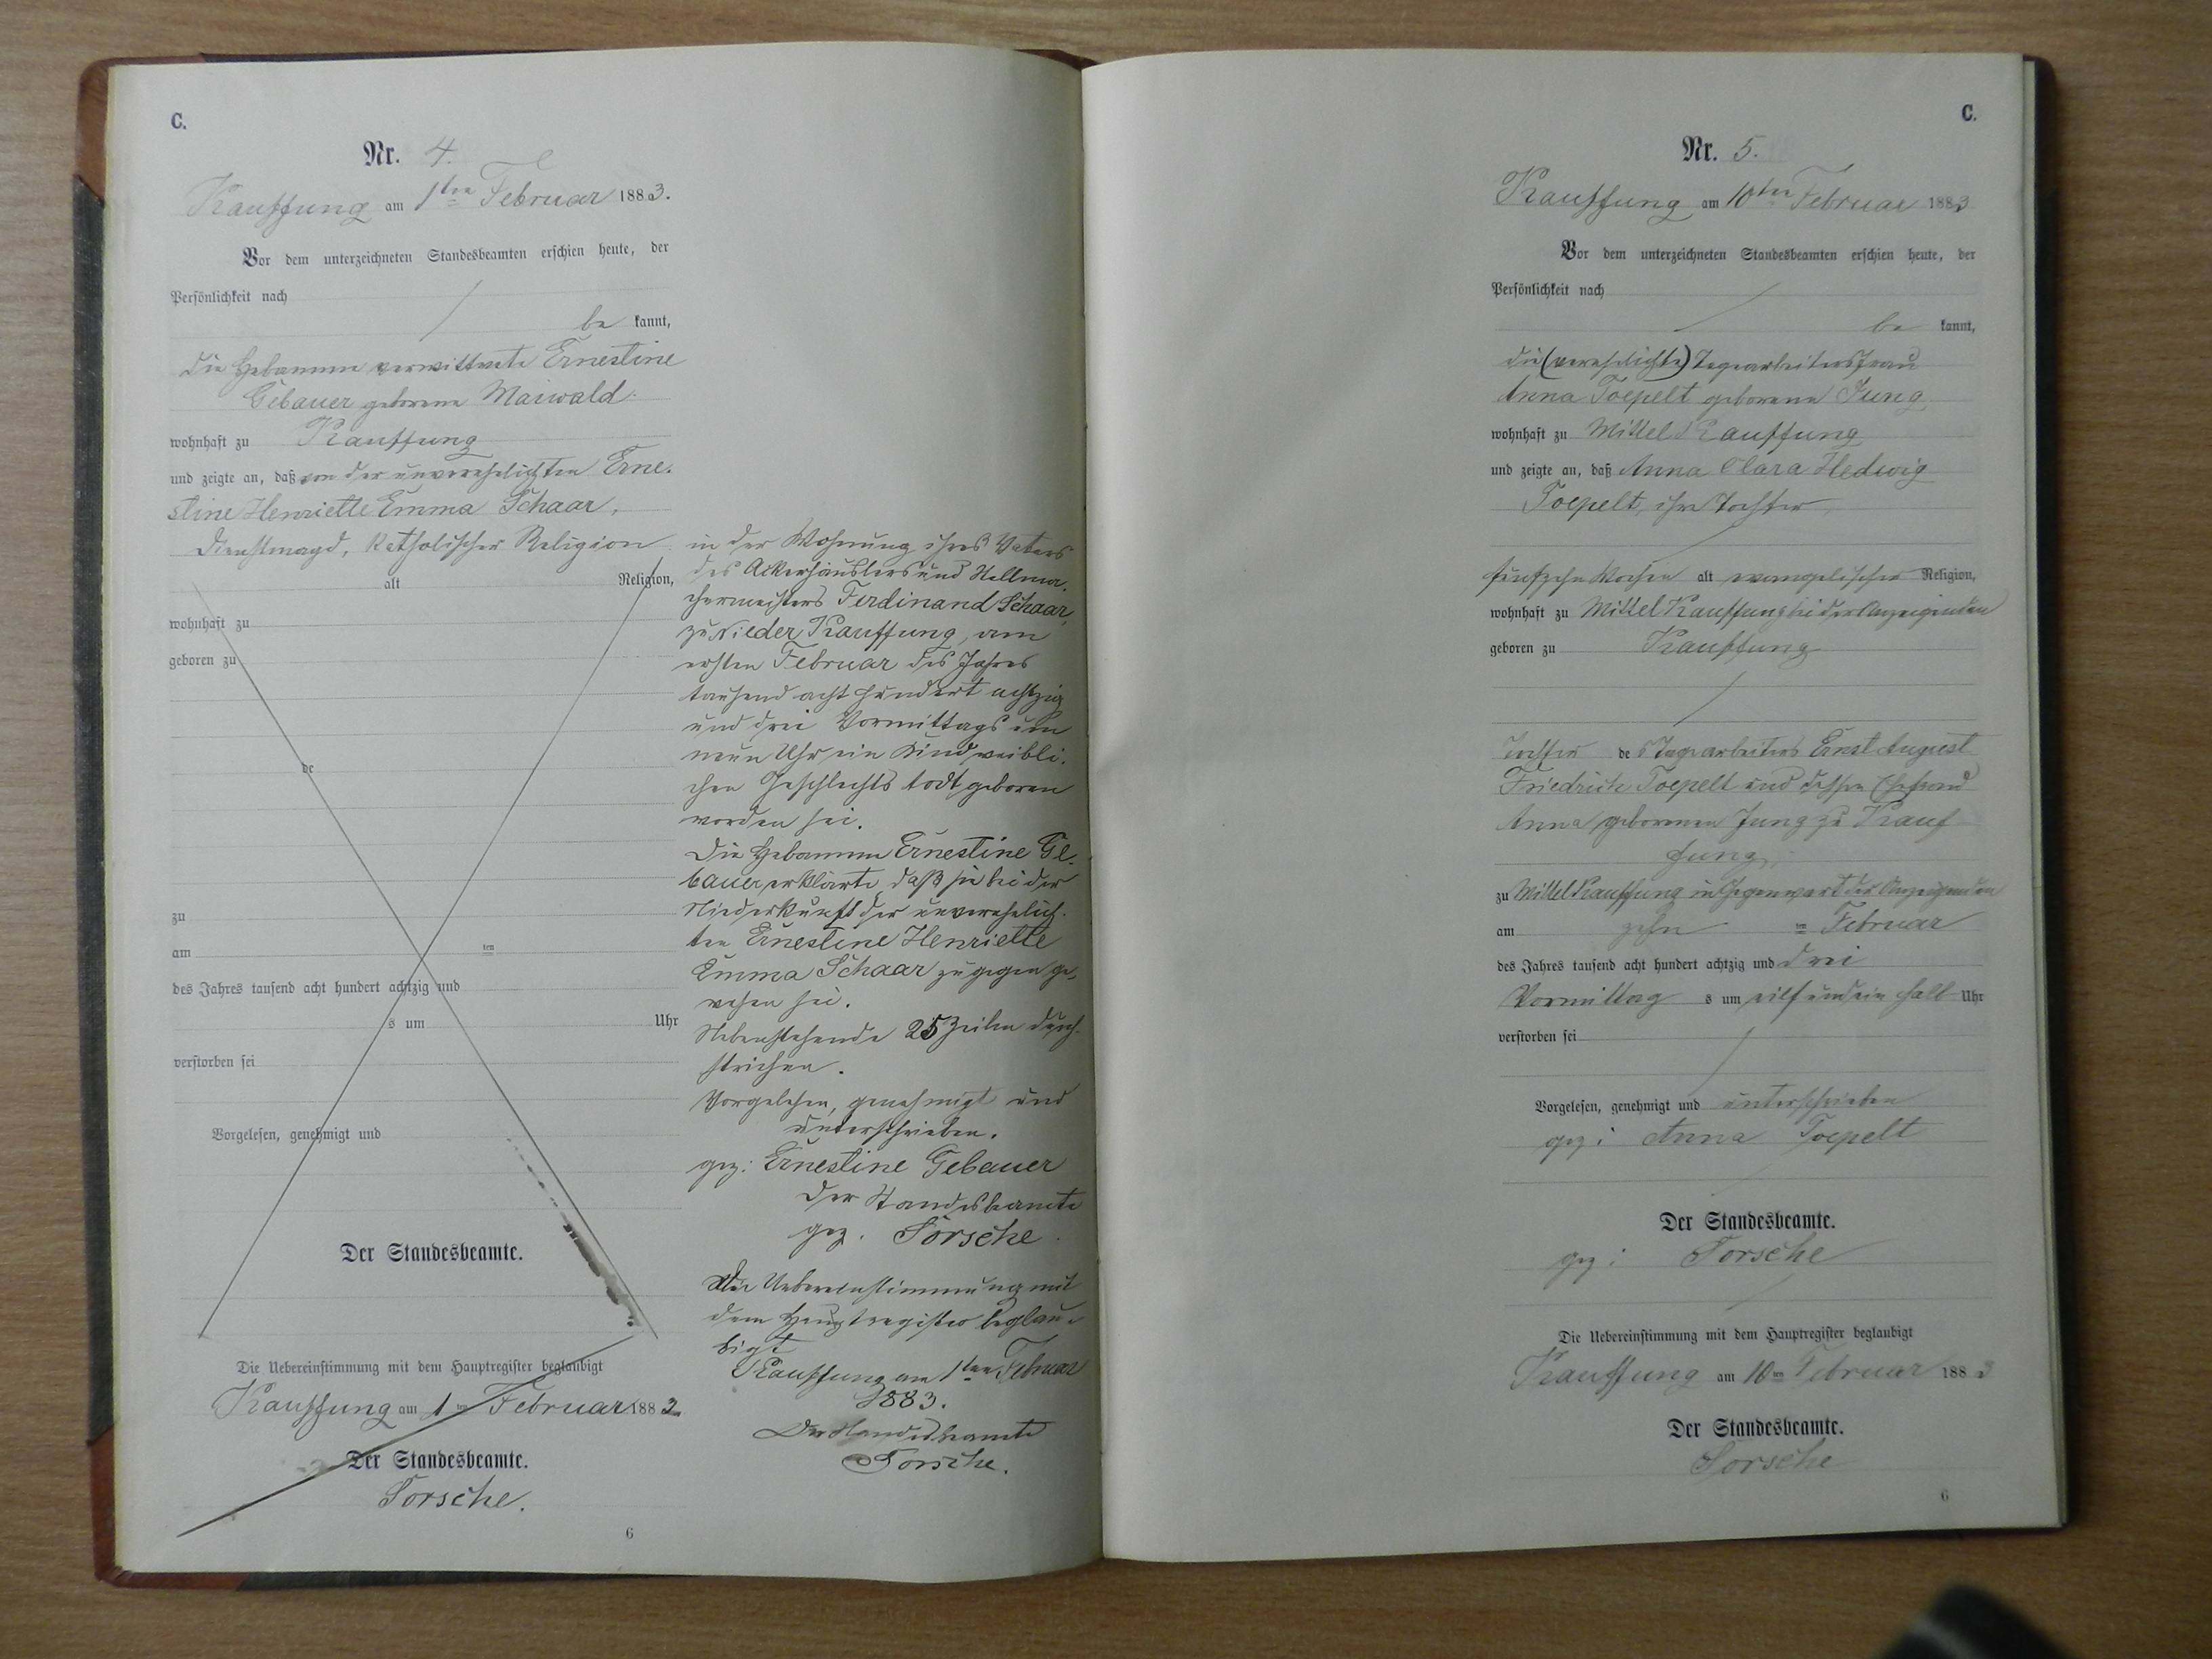 C.
Nr. 4.
Kauffung am 1ten Februar 1883.
Vor dem unterzeichneten Standesbeamten erschien heute, der
Persönlichkeit nach
be kannt,
die Hebamme verwittwete Ernestine
Gebauer geborene Maiwald
wohnhaft zu Kauffung
und zeigte an, daß von der unverehelichten Erne-
stine Henriette Emma Schaar,
Dienstmagd, katholischer Religion
alt Religion,
wohnhaft zu
geboren zu
de
zu
am ten
des Jahres tausend acht hundert achtzig und
s um Uhr
verstorben sei
Vorgelesen, genehmigt und
Der Standesbeamte.
Die Uebereinstimmung mit dem Hauptregister beglaubigt
Kauffung am 1 ten Februar 1882
Der Standesbeamte.
Torsche.
6
in der Wohnung ihres Vaters
des Ackerhäuslers und Stellma-
chermeisters Ferdinand Schaar,
zu Nieder Kauffung, am
ersten Februar des Jahres
tausend acht hundert achtzig
und drei Vormittags um
neun Uhr ein Kind weibli-
chen Geschlechts todt geboren
worden sei.
Die Hebamme Ernestine Ge-
bauer erklärte, daß sie bei der
Niederkunft der unverehelich-
ten Ernestine Henriette
Emma Schaar zugegen ge-
wesen sei.
Nebenstehende 25 Zeilen durch-
strichen.
Vorgelesen, genehmigt und
unterschrieben.
gez: Ernestine Gebauer
Der Standesbeamte
gez. Torsche.
Die Uebereinstimmung mit
dem Hauptregister beglau-
bigt
Kauffung am 1ten Februar
1883.
Der Standesbeamte
Torsche.
C.
Nr. 5.
Kauffung am 10ten Februar 1883
Vor dem unterzeichneten Standesbeamten erschien heute, der
Persönlichkeit nach
be kannt,
die (verehelichte) Tagearbeitersfrau
Anna Toepelt geborene Jung
wohnhaft zu Mittel Kauffung
und zeigte an, daß Anna Clara Hedwig
Toepelt, ihre Tochter,
fünfzehn Wochen alt evangelischer Religion,
wohnhaft zu Mittel Kauffung bei der Anzeigenden
geboren zu Kauffung
Tochter des Tagearbeiters Ernst August
Friedrich Toepelt und dessen Ehefrau
Anna geborenen Jung zu Kauf
fung,
zu Mittel Kauffung in Gegenwart der Anzeigenden
am zehn ten Februar
des Jahres tausend acht hundert achtzig und drei
Vormittag s um eilf und ein halb Uhr
verstorben sei
Vorgelesen, genehmigt und unterschrieben
gez: Anna Toepelt
Der Standesbeamte.
gez: Torsche
Die Uebereinstimmung mit dem Hauptregister beglaubigt
Kauffung am 10 ten Februar 1883
Der Standesbeamte.
Torsche
6